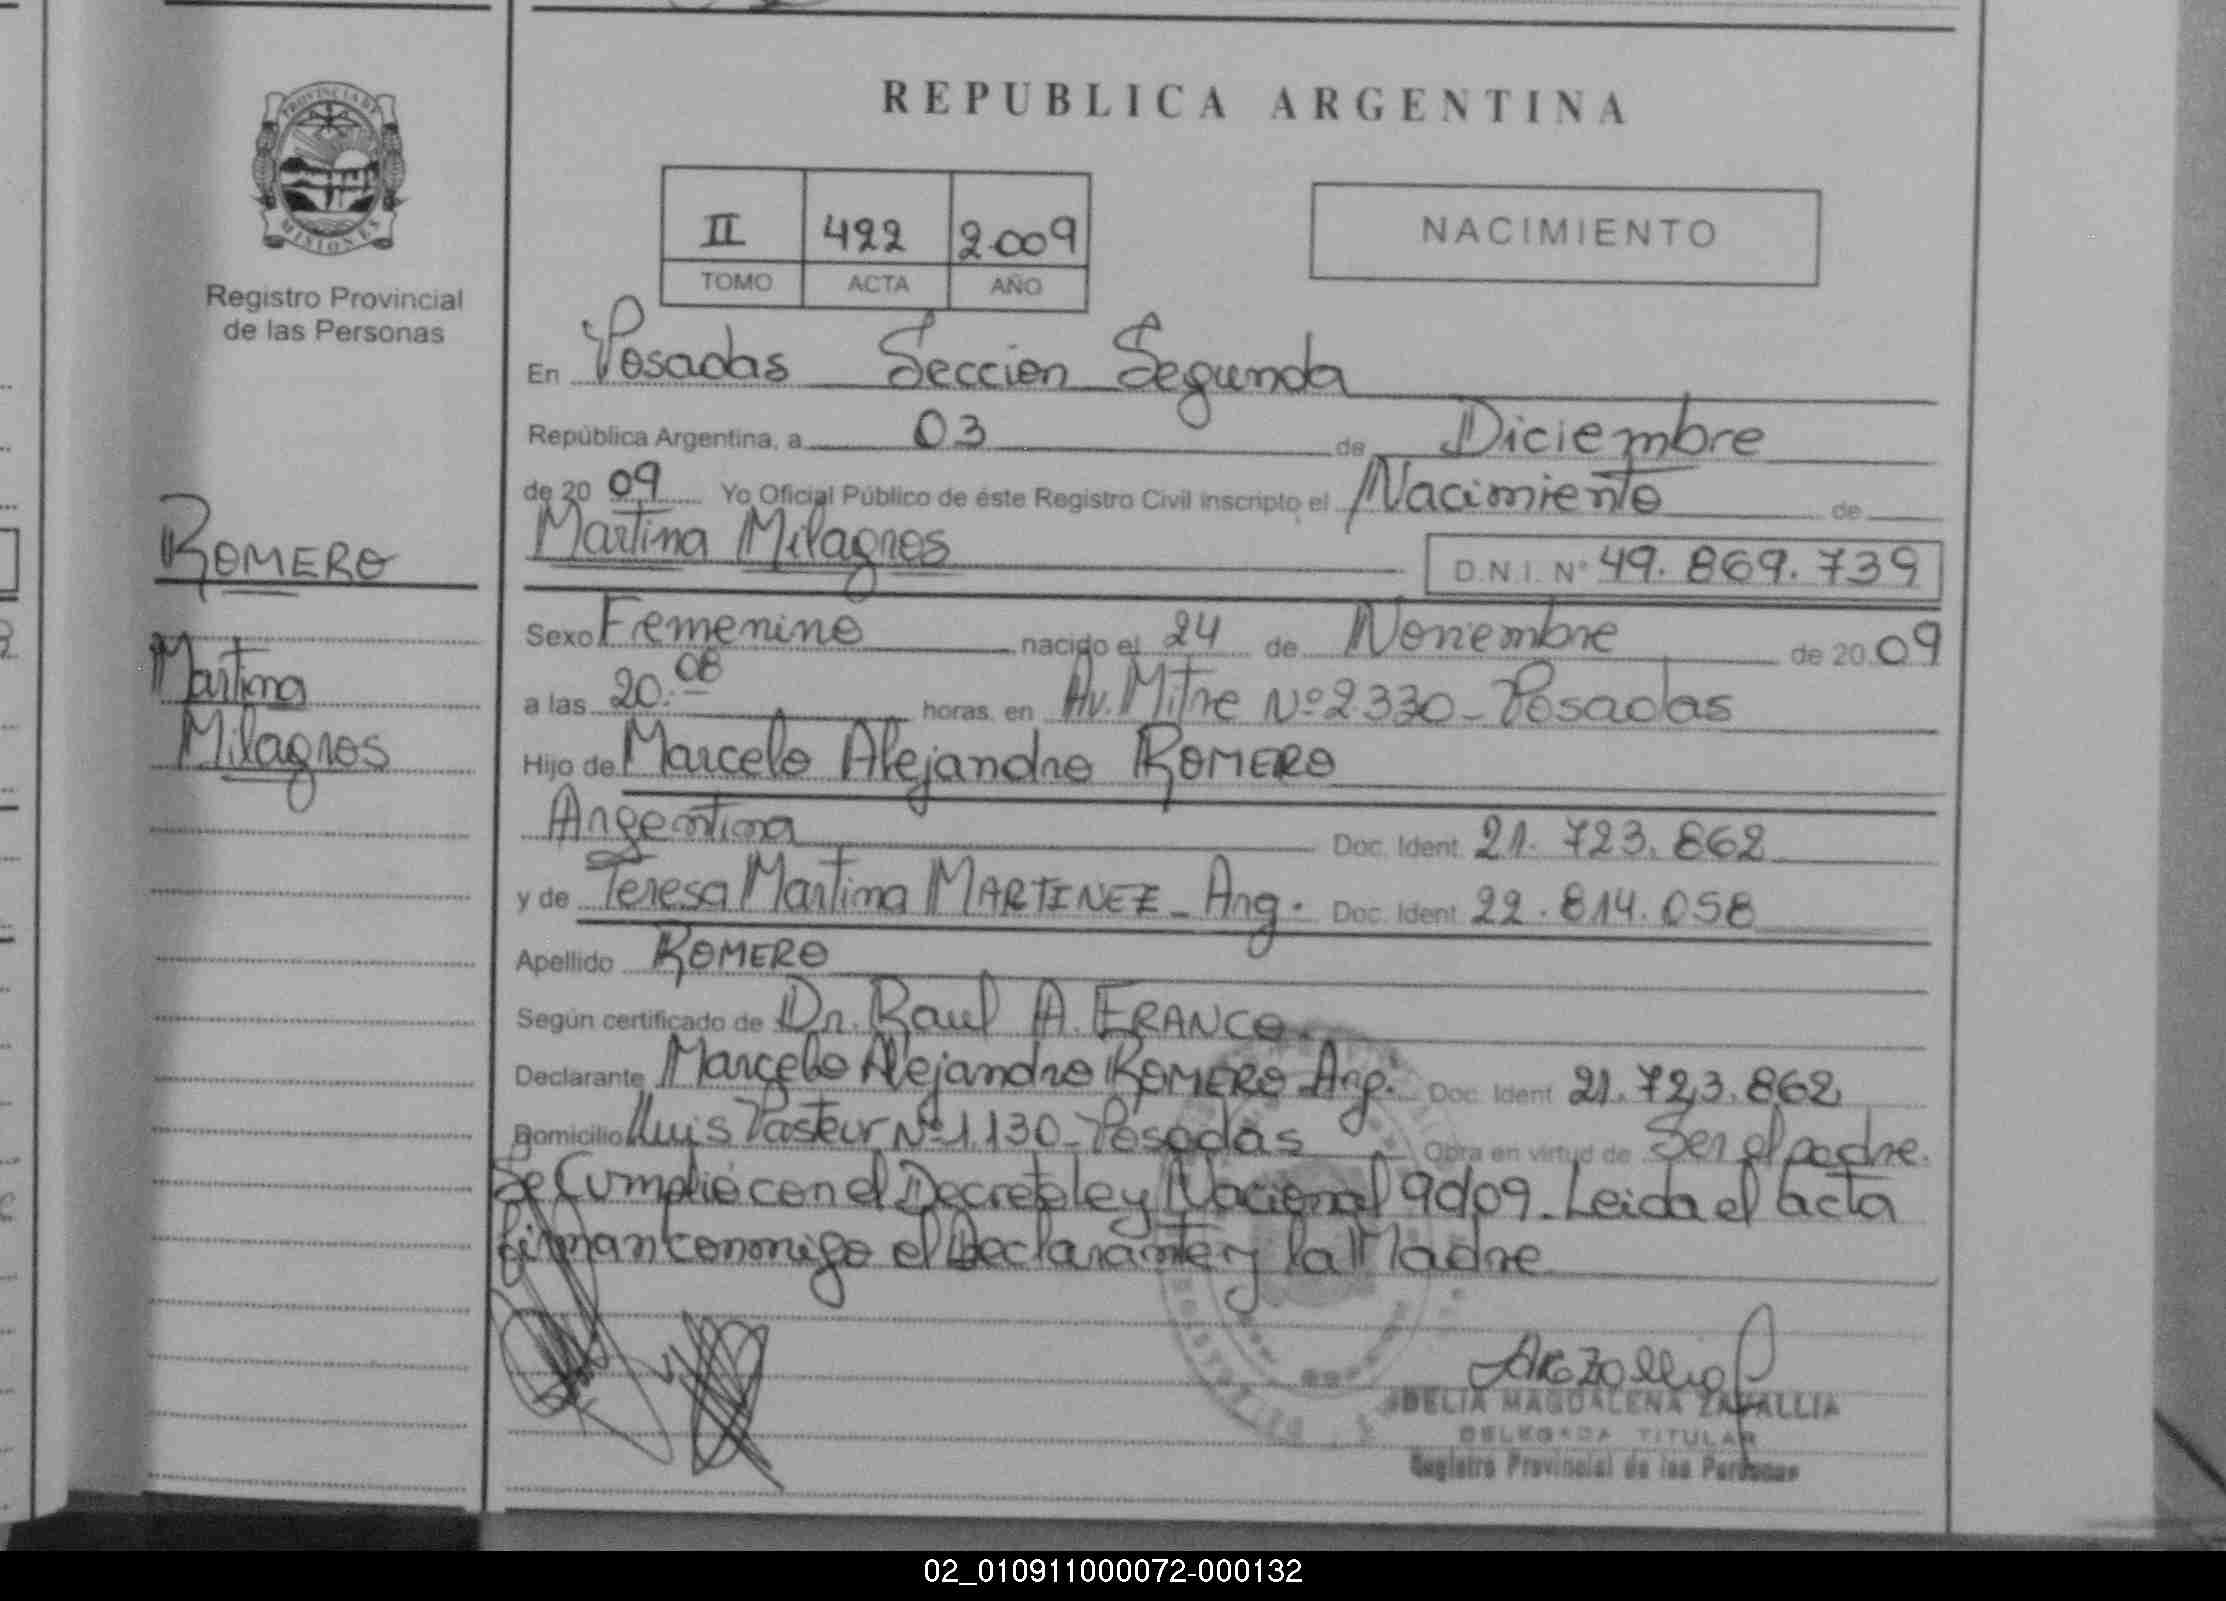 REPUBLICA ARGENTINA
PROVINCIA DE
MISIONES
Registro Provincial
de las Personas
II 422 2009
TOMO ACTA AÑO
NACIMIENTO
En Posadas Seccion Segunda
República Argentina, a 03 de Diciembre
de 2009 Yo Oficial Público de éste Registro Civil inscripto el Nacimiento de
Martina Milagros D.N.I. Nº 49.869.739
ROMERO
Martina
Milagros
Sexo Femenino nacido el 24 de Noviembre de 2009
a las 20:08 horas, en Av. Mitre Nº 2330 - Posadas
Hijo de Marcelo Alejandro ROMERO
Argentina Doc. Ident. 21.723.862
y de Teresa Martina MARTINEZ - Arg. Doc. Ident. 22.814.058
Apellido ROMERO
Según certificado de Dr. Raul A. FRANCO.
Declarante Marcelo Alejandro ROMERO Arg. Doc. Ident. 21.723.862
Domicilio Luis Pasteur Nº 1130 - Posadas Obra en virtud de Ser el padre.
Se Cumplió con el Decreto ley Nacional 9d09. Leida el acta
firman conmigo el Declarante y la Madre
DELIA MAGDALENA
DELEGADA TITULAR
Registro Provincial de las Personas
02_010911000072-000132